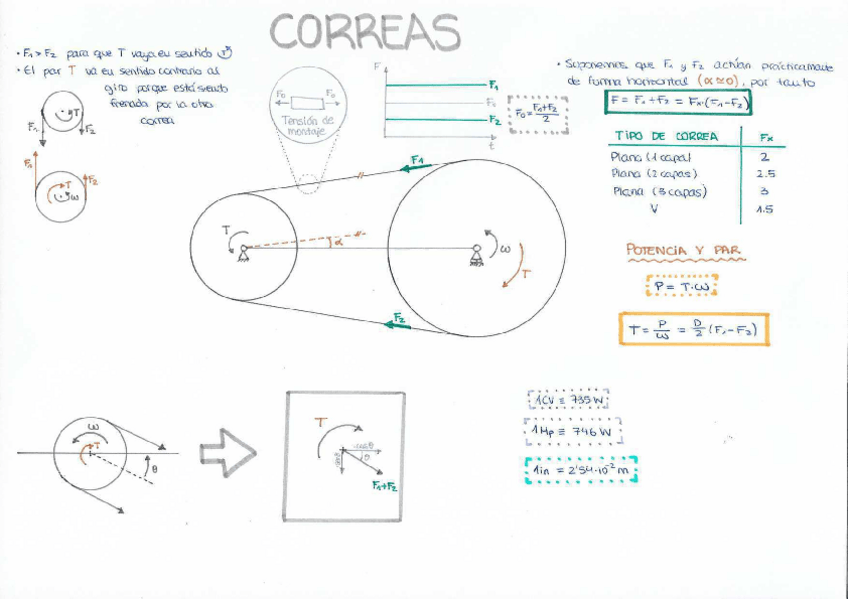 CORREAS
• F1 > F2 para que T vaya en sentido
• El par T va en sentido contrario al
giro porque está siendo
frenada por la otra
correa
T
F1
F2
F1
F2
T
ω
F0
F0
Tensión de
montaje
F
F1
F2
t
F0 = F1+F2 / 2
• Suponemos que F1 y F2 actúan prácticamente
de forma horizontal (α≃0), por tanto
F = F1 + F2 = Fx·(F1-F2)
TIPO DE CORREA Fx
Plana (1 capa) 2
Plana (2 capas) 2.5
Plana (3 capas) 3
V 1.5
F1
T
α
ω
T
F2
POTENCIA Y PAR
P = T·ω
T = P/ω = D/2 (F1 - F2)
ω
T
θ
T
cosθ
senθ
θ
F1+F2
1CV ≡ 735 W
1Hp ≡ 746 W
1in = 2'54·10⁻² m